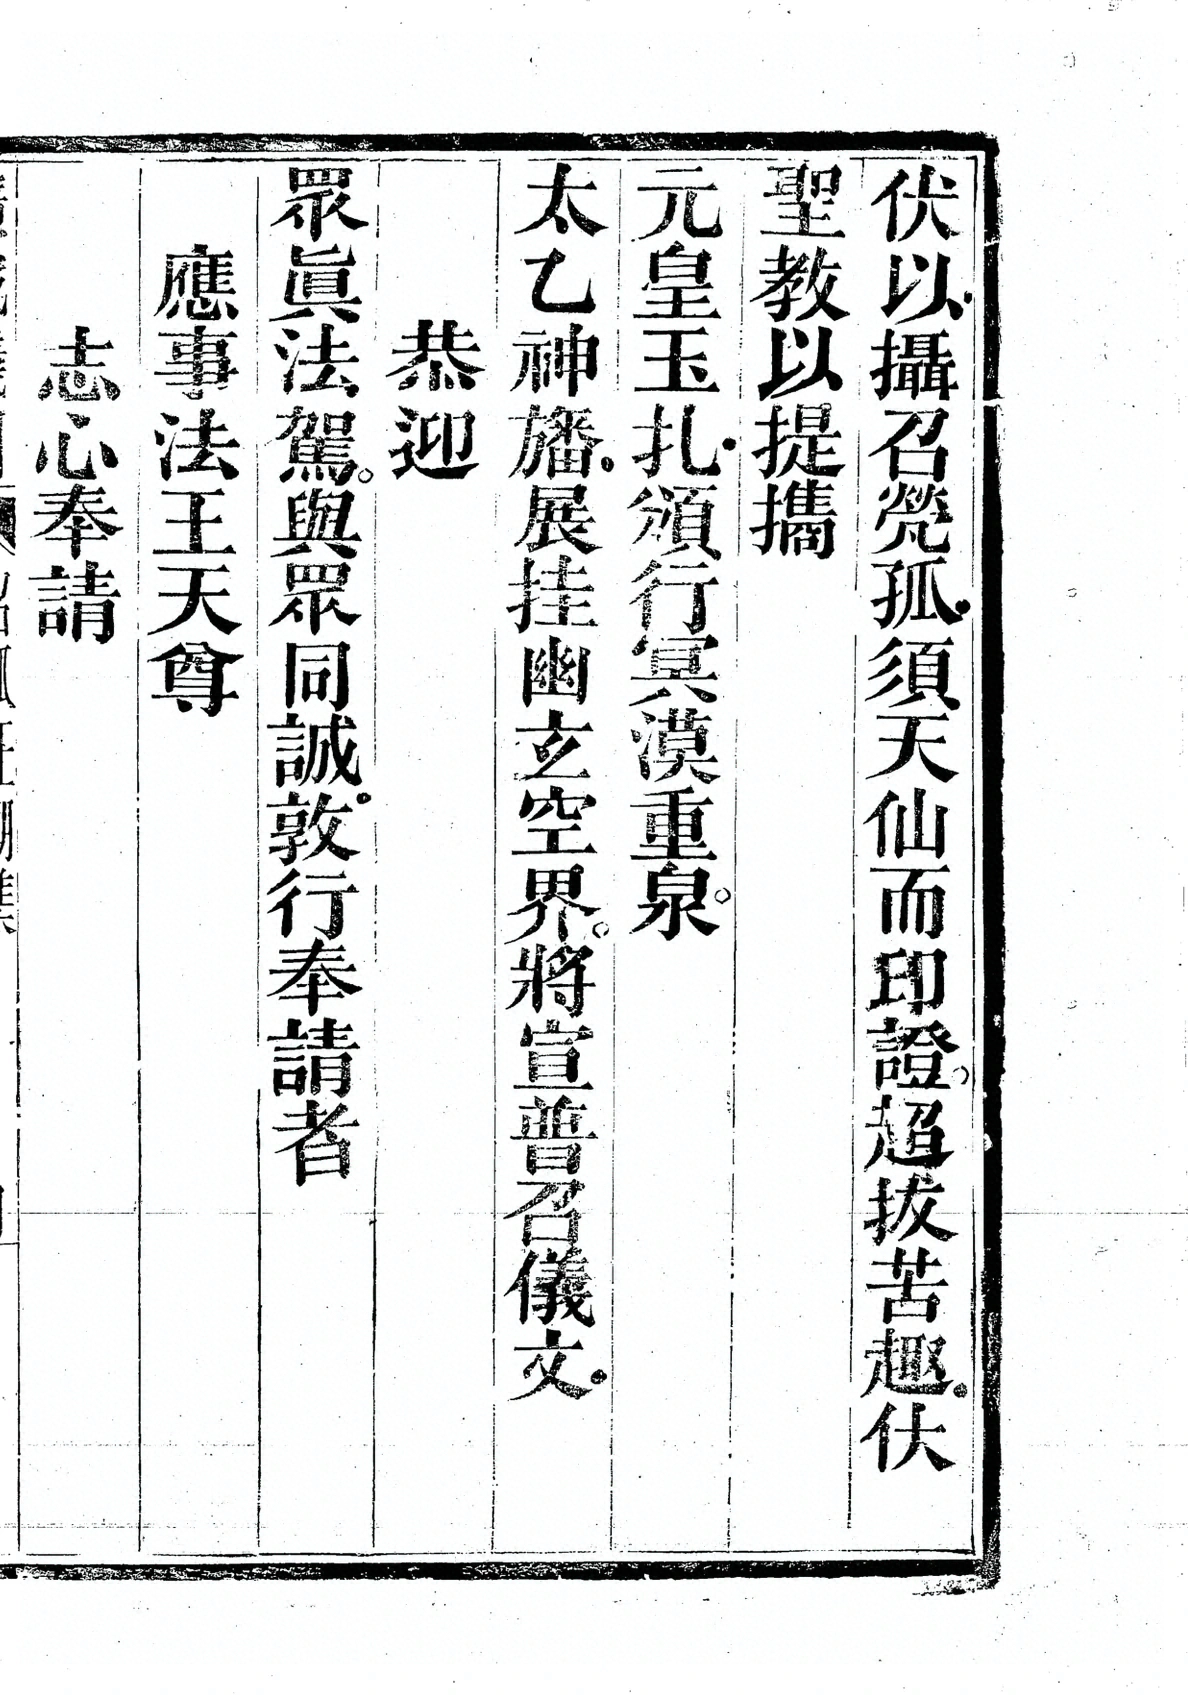 伏以攝召煢孤須天仙而印證。超拔苦趣。伏
聖教以提攜
元皇玉扎頒行冥漠重泉。
太乙神旛。展挂幽玄空界。將宣普召儀文。
恭迎
眾眞法駕。與眾同誠。敦行奉請者
應事法王天尊
志心奉請